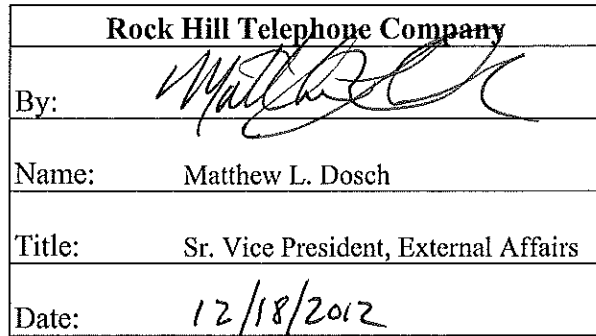 Rock Hill Telephone Company
By:
Name: Matthew L. Dosch
Title: Sr. Vice President, External Affairs
Date: 12/18/2012